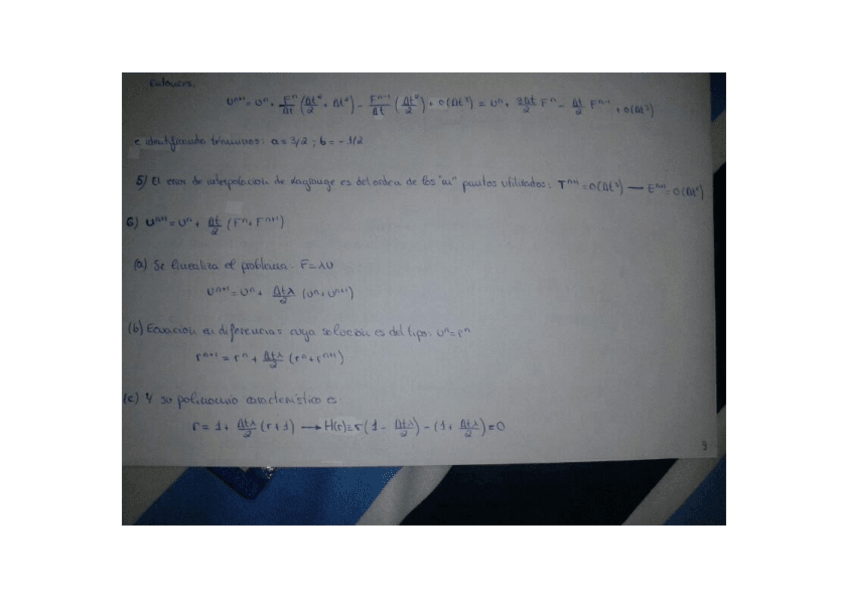 Entonces,
Uⁿ⁺¹ = Uⁿ + Fⁿ/Δt (Δt²/2 + Δt²) - Fⁿ⁻¹/Δt (Δt²/2) + O(Δt³) = Uⁿ + 3Δt/2 Fⁿ - Δt/2 Fⁿ⁻¹ + O(Δt³)
e identificando términos: a = 3/2 ; b = - 1/2
5) El error de interpolación de Lagrange es del orden de los "m" puntos utilizados: Tⁿ⁺¹ = O(Δt³) — Eⁿ⁺¹ = O(Δt²)
6) Uⁿ⁺¹ = Uⁿ + Δt/2 (Fⁿ + Fⁿ⁺¹)
(a) Se linealiza el problema: F = λU
Uⁿ⁺¹ = Uⁿ + Δtλ/2 (Uⁿ + Uⁿ⁺¹)
(b) Ecuación en diferencias cuya solución es del tipo: Uⁿ = rⁿ
rⁿ⁺¹ = rⁿ + Δtλ/2 (rⁿ + rⁿ⁺¹)
(c) Y su polinomio característico es:
r = 1 + Δtλ/2 (r + 1) → H(r) = r(1 - Δtλ/2) - (1 + Δtλ/2) = 0
9